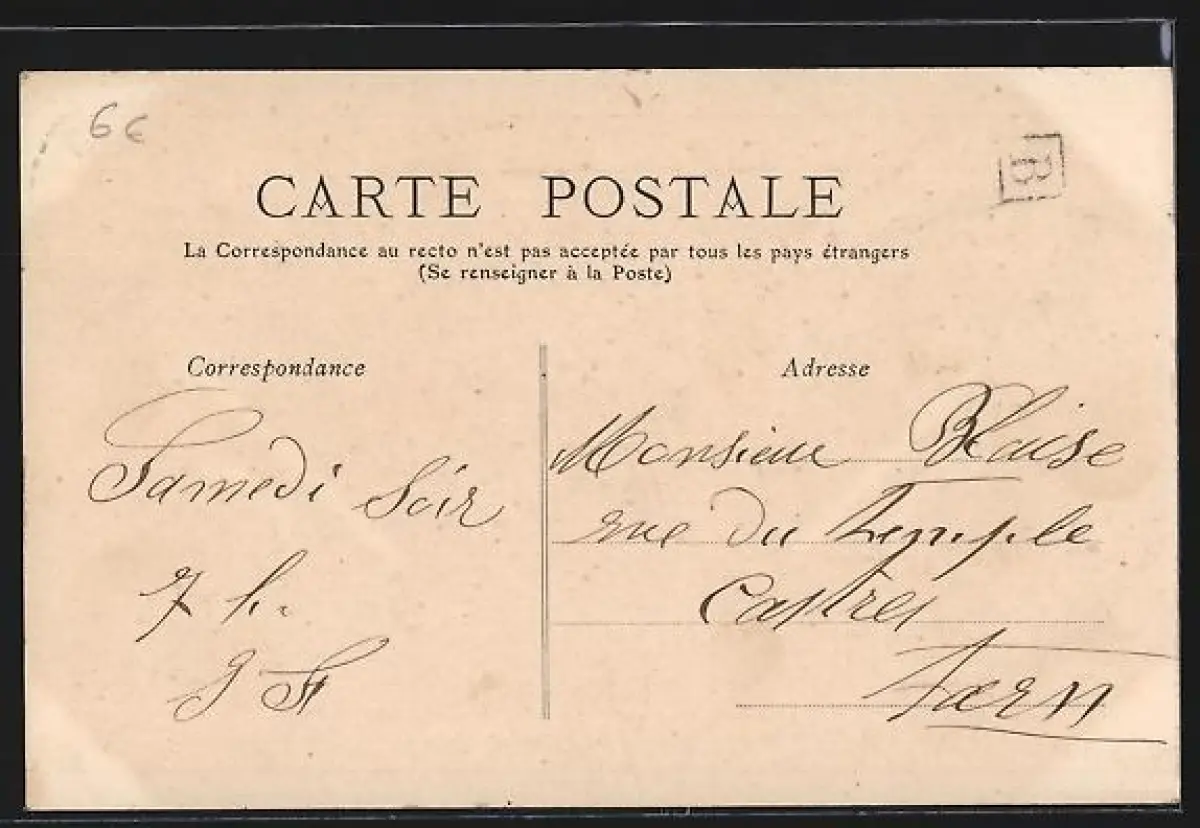 6€
B
CARTE POSTALE
La Correspondance au recto n'est pas acceptée par tous les pays étrangers
(Se renseigner à la Poste)
Correspondance
Samedi Soir
7 h.
J F
Adresse
Monsieur Blaise
rue du Temple
Castres
Tarn